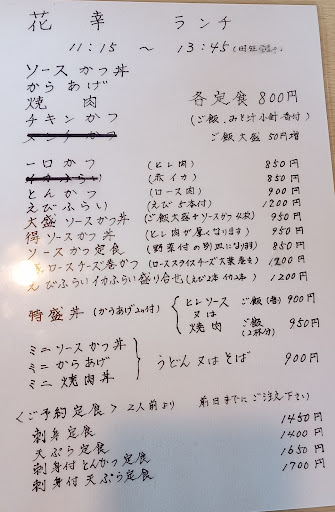 花幸 ランチ
11:15 ～ 13:45
ソースかつ丼
からあげ
焼肉 各定食 800円
チキンかつ (ご飯、みそ汁小鉢香付)
メンチかつ ご飯大盛 50円増
一口かつ (ヒレ肉) 850円
イカふらい (赤イカ) 850円
とんかつ (ロース肉) 900円
えびふらい (えび5本付) 1200円
大盛ソースかつ丼 (ご飯大盛+ソースかつ4枚) 950円
得ソースかつ丼 (ヒレ肉が厚くなります) 950円
ソースかつ定食 (野菜付の別皿になります) 850円
ロースチーズ巻かつ (ローススライスチーズ大葉巻き) 1200円
えびふらいイカふらい盛り合せ (えび2本イカ2本) 1200円
特盛丼 (からあげ2ヶ付) ヒレソース 又は 焼肉
ご飯(増) 900円
ご飯(2杯分) 950円
ミニソースかつ丼
ミニからあげ うどん又はそば 900円
ミニ焼肉丼
<ご予約定食> 2人前より 前日までにご注文下さい
刺身定食 1450円
天ぷら定食 1400円
刺身付とんかつ定食 1650円
刺身付天ぷら定食 1700円